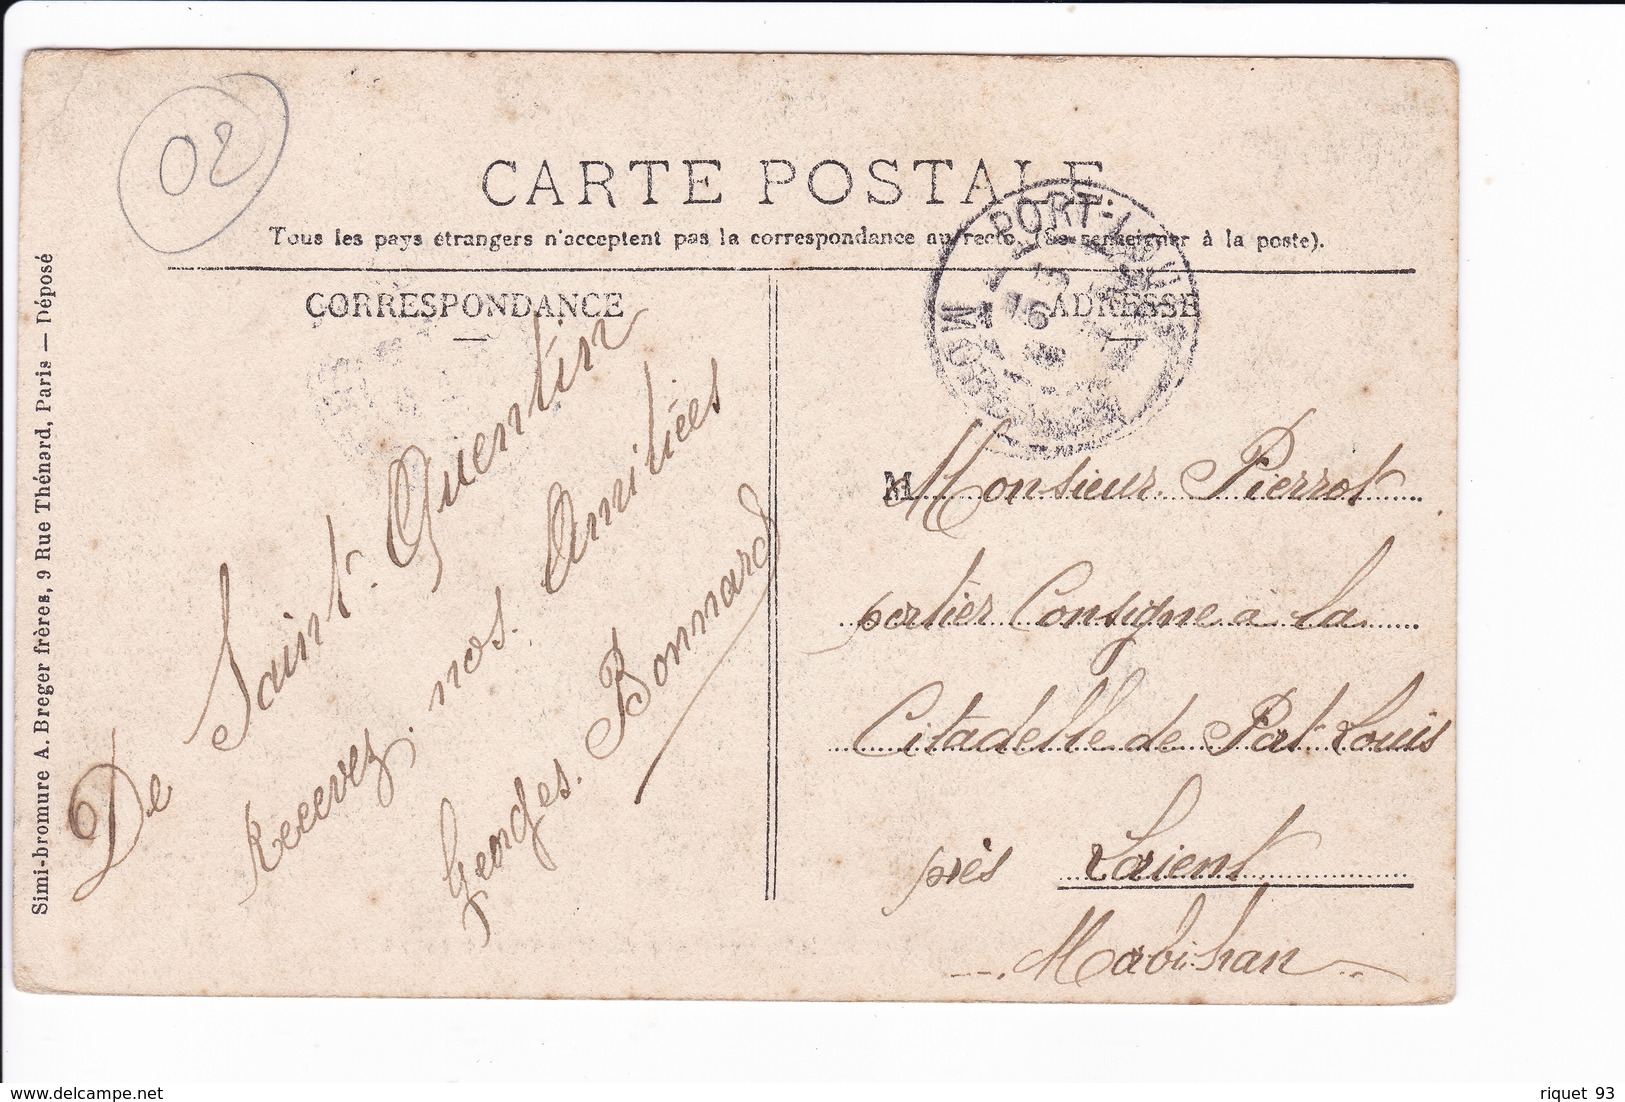 02
CARTE POSTALE
Tous les pays étrangers n'acceptent pas la correspondance au recto. (Se renseigner à la poste).
CORRESPONDANCE
ADRESSE
PORT-LOUIS
16
MORBIHAN
De Saint-Quentin
Recevez nos Amitiées
Georges. Bonnard
M Monsieur Pierrot
portier Consigne a la
Citadelle de Port Louis
près Lorient
Mabihan
Simi-bromure A. Breger frères, 9 Rue Thénard, Paris — Déposé
riquet 93